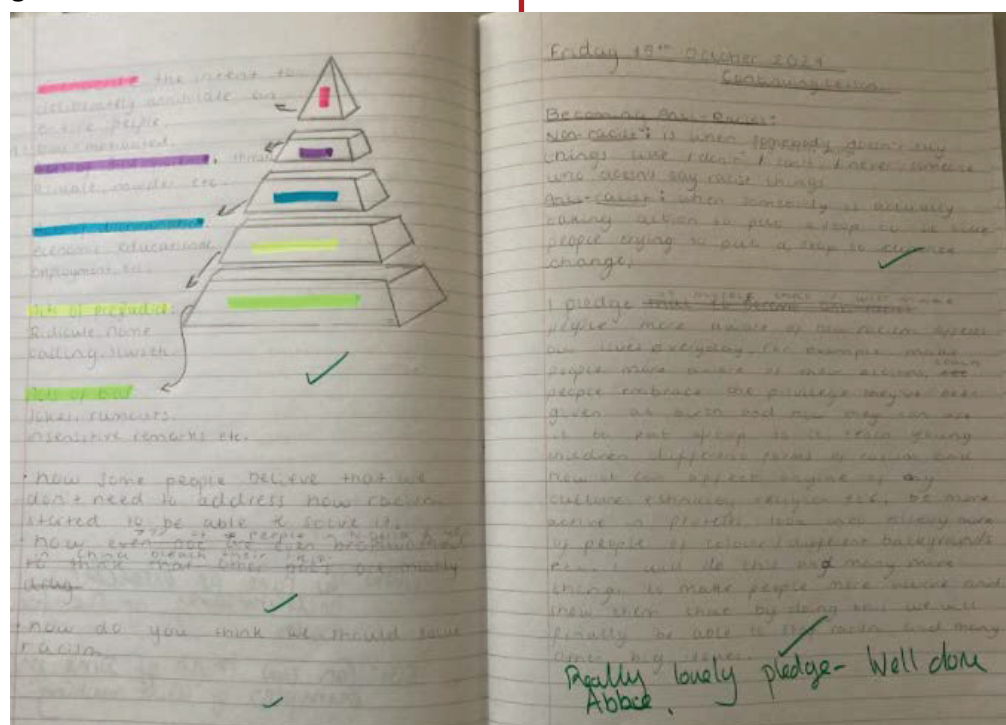 the intent to
deliberately annihilate an
entire people.
Bias motivated
threat
economic, educational,
employment etc.
Acts of prejudice:
Ridicule name
calling, slurs etc.
Acts of bias
Jokes, rumours,
insensitive remarks etc.
• how some people believe that we
don't need to address how racism
started to be able to solve it.
people in
in china bleach their
to think that other
• how do you think we should solve
racism
Friday 15th October 2021
Continuing lesson
Becoming Anti-Racist:
Non-racist: is when somebody doesn't say
things like I don't, I can't, I never, someone
who doesn't say racist things.
Anti-racist: when somebody is actually
taking action to put a stop to it like
people trying to put a stop to
change.
I pledge
people more aware of how racism affects
our lives everyday. For example make
people more aware of their actions,
people embrace the privilege they've been
given at birth and how they can use
it to put a stop to it, teach young
children different forms of racism and
how it can affect anyone of any
culture, ethnicity, religion etc. be more
active in protests,
of people of colour / different backgrounds
etc. I will do this and many more
things to make people more aware and
show them that by doing this we will
finally be able to stop racism and many
other big issues.
Really lovely pledge - Well done
Abbie.